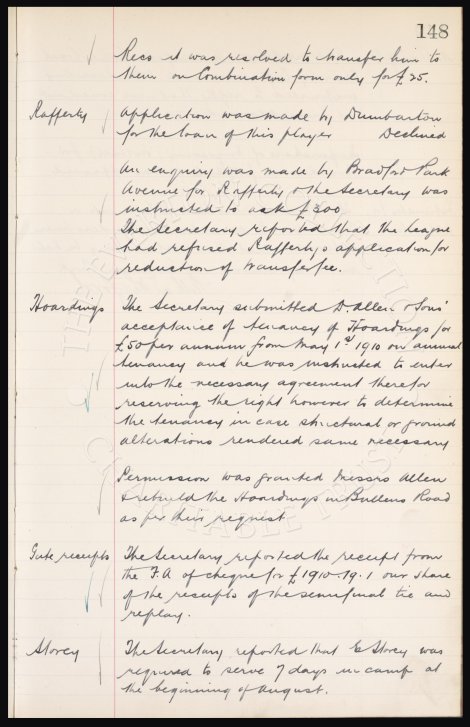 148
Recs it was resolved to transfer him to
them on Combination form only for £25.
Rafferty Application was made by Dumbarton
for the loan of this player Declined
An enquiry was made by Bradford Park
Avenue for Rafferty & the Secretary was
instructed to ask £300
The Secretary reported that the League
had refused Raffertys application for
reduction of transfer fee.
Hoardings The Secretary submitted D. Allen & Sons'
acceptance of tenancy of Hoardings for
£50 per annum from May 1st 1910 on annual
tenancy and he was instructed to enter
into the necessary agreement therefor
reserving the right however to determine
the tenancy in case structural or ground
alterations rendered same necessary
Permission was granted Messrs Allen
to rebuild the Hoardings in Bullens Road
as per their request
Gate receipts The Secretary reported the receipt from
the F.A of cheque for £1910-19.1 our share
of the receipts of the semifinal tie and
replay.
Storey The Secretary reported that E Storey was
required to serve 7 days in camp at
the beginning of August.